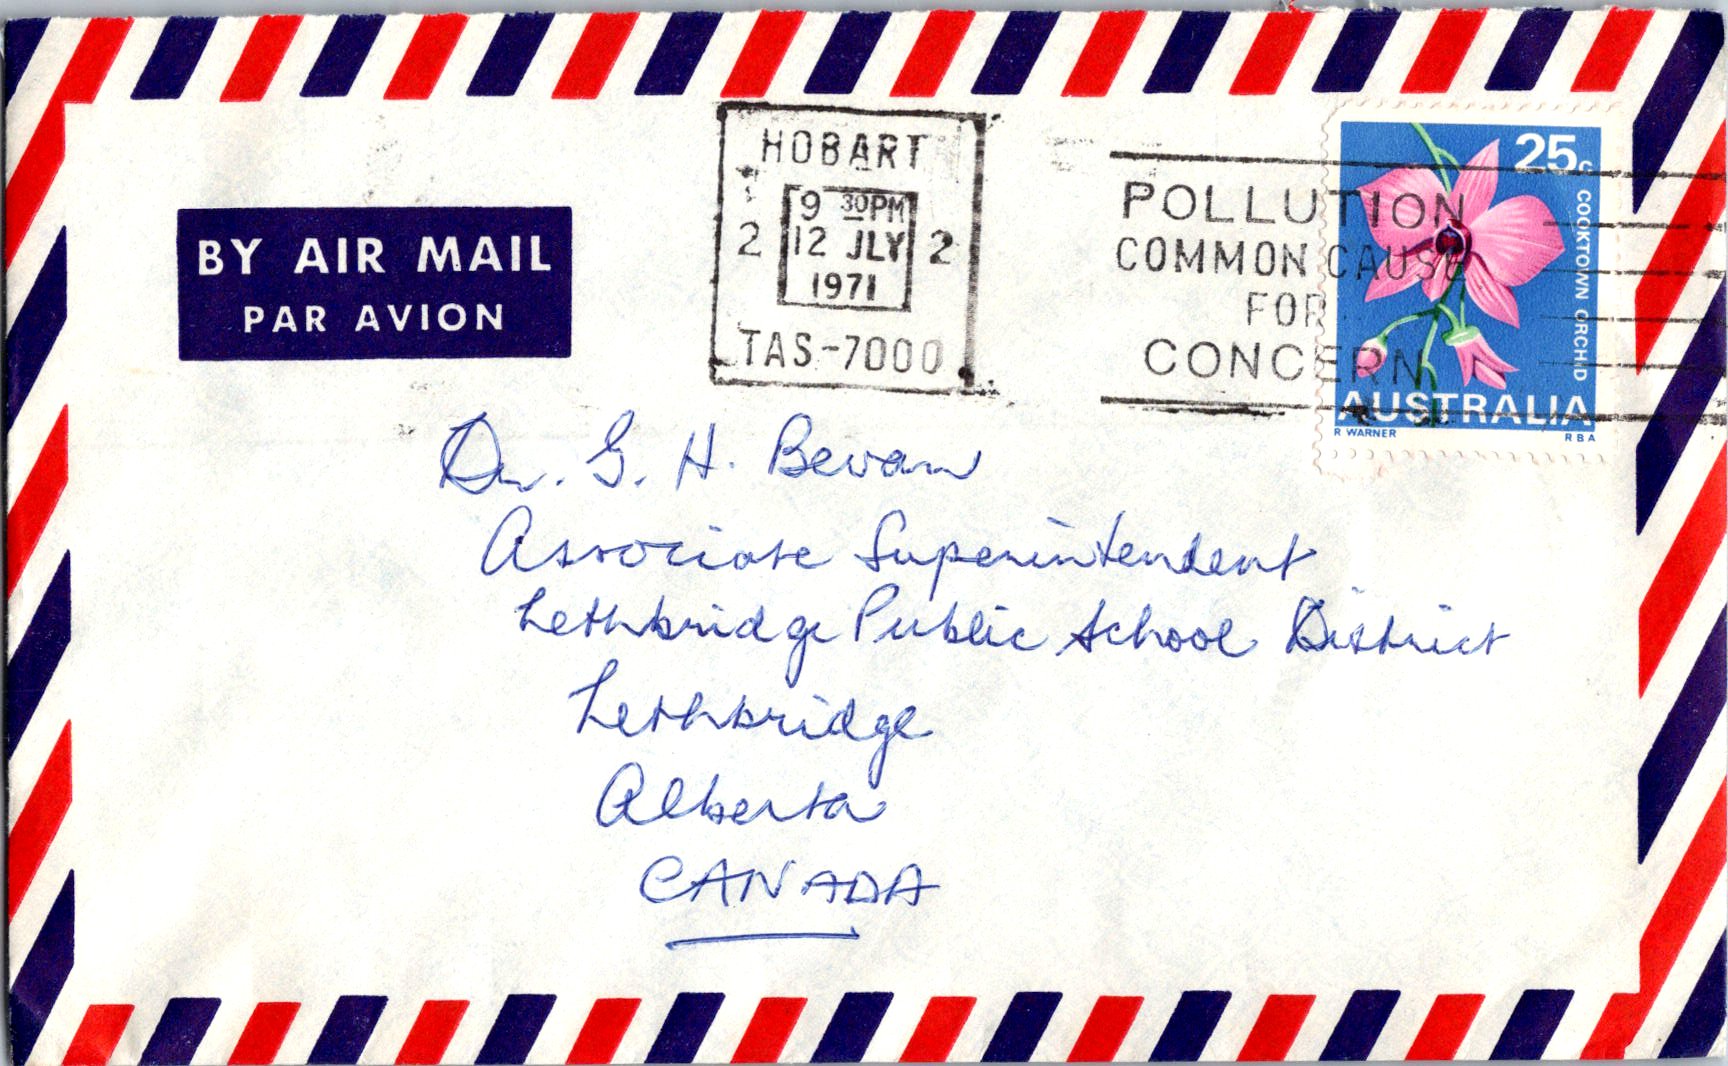 HOBART
2 9 30PM 2
12 JLY
1971
TAS-7000
POLLUTION
COMMON CAUSE
FOR
CONCERN
25c
COOKTOWN ORCHID
AUSTRALIA
R WARNER RBA
BY AIR MAIL
PAR AVION
Dr. G. H. Bevan
Associate Superintendent
Lethbridge Public School District
Lethbridge
Alberta
CANADA